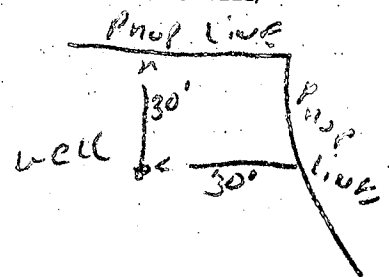 PROP LINE
N
30'
PROP
LINE
WELL
30'